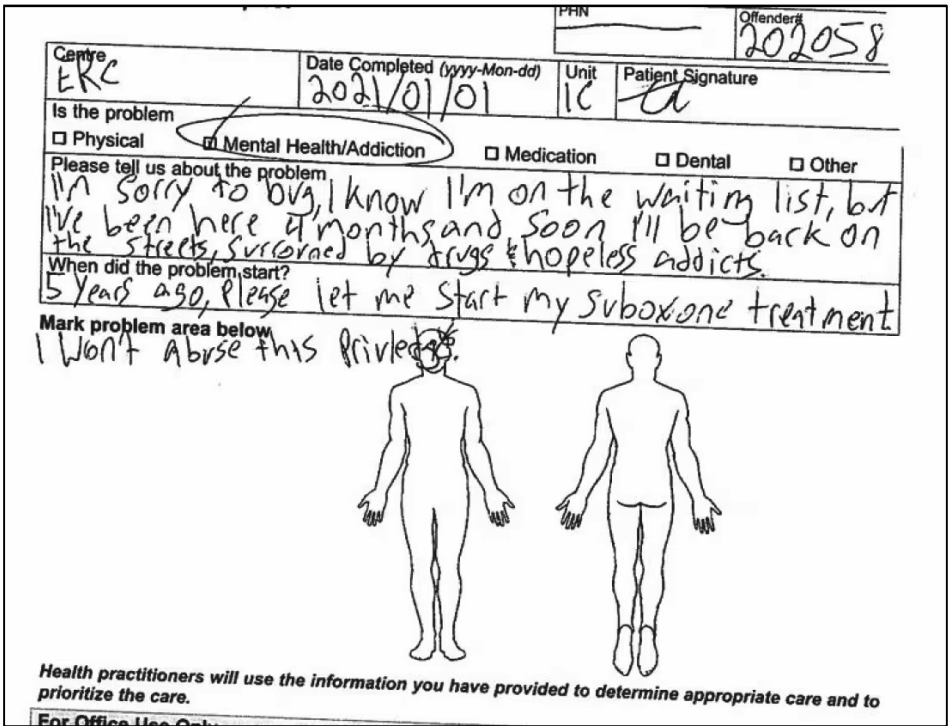 PHN
Offender#
202058
Centre
ERC
Date Completed (yyyy-Mon-dd)
2021/01/01
Unit
1C
Patient Signature
Is the problem
Physical
Mental Health/Addiction
Medication
Dental
Other
Please tell us about the problem
I'm sorry to bug, I know I'm on the waiting list, but
I've been here 4 months and soon I'll be back on
the streets, surrorned by drugs & hopeless addicts.
When did the problem start?
5 years ago, Please let me start my suboxone treatment
Mark problem area below
I Won't abuse this
Health practitioners will use the information you have provided to determine appropriate care and to
prioritize the care.
For Office Use Only